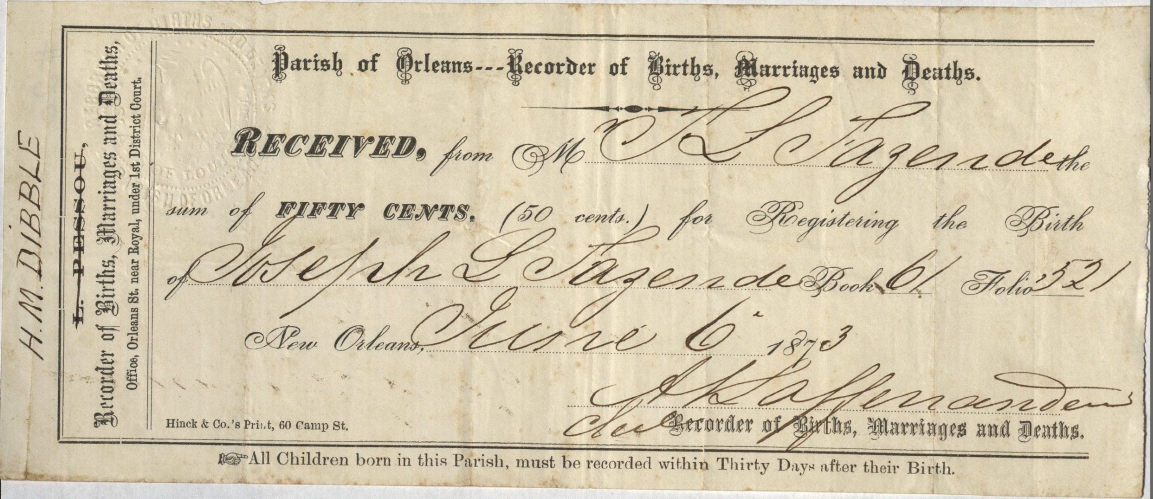 H.M. DIBBLE
L. PESSOU,
Recorder of Births, Marriages and Deaths,
Office, Orleans St. near Royal, under 1st District Court.
Parish of Orleans---Recorder of Births, Marriages and Deaths.
RECEIVED, from M r T L Fazende the
sum of FIFTY CENTS. (50 cents.) for Registering the Birth
of Joseph L Fazende Book 61 Folio 521
New Orleans, June 6 1873
Recorder of Births, Marriages and Deaths.
Hinck & Co.'s Print, 60 Camp St.
☞All Children born in this Parish, must be recorded within Thirty Days after their Birth.